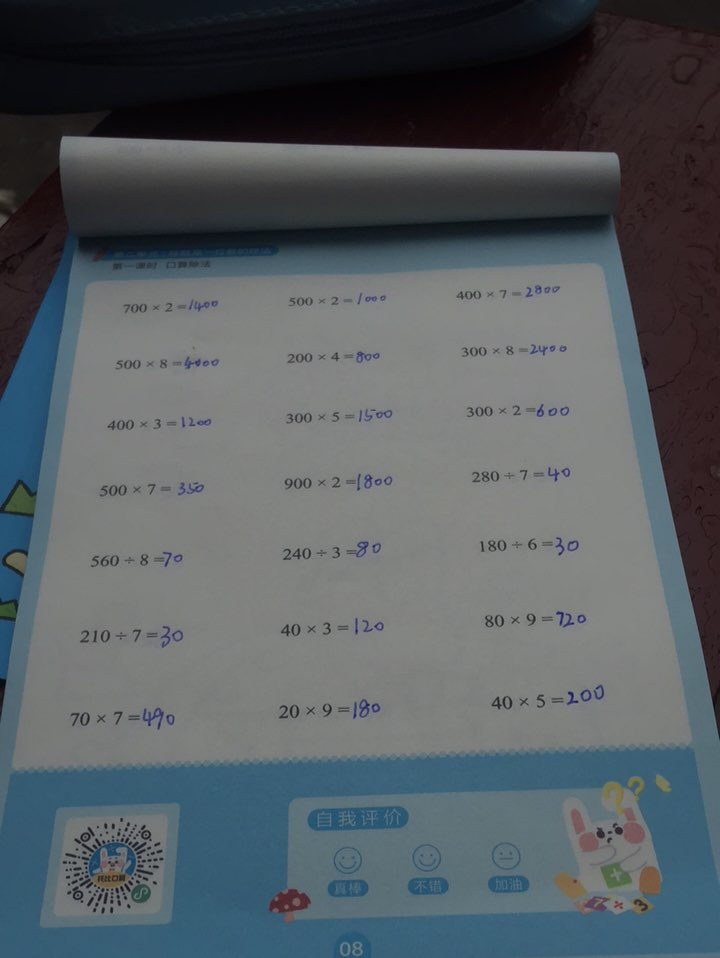 700 × 2 = 1400 500 × 2 = 1000 400 × 7 = 2800
500 × 8 = 4000 200 × 4 = 800 300 × 8 = 2400
400 × 3 = 1200 300 × 5 = 1500 300 × 2 = 600
500 × 7 = 350 900 × 2 = 1800 280 ÷ 7 = 40
560 ÷ 8 = 70 240 ÷ 3 = 80 180 ÷ 6 = 30
210 ÷ 7 = 30 40 × 3 = 120 80 × 9 = 720
70 × 7 = 490 20 × 9 = 180 40 × 5 = 200
自我评价
真棒 不错 加油
08